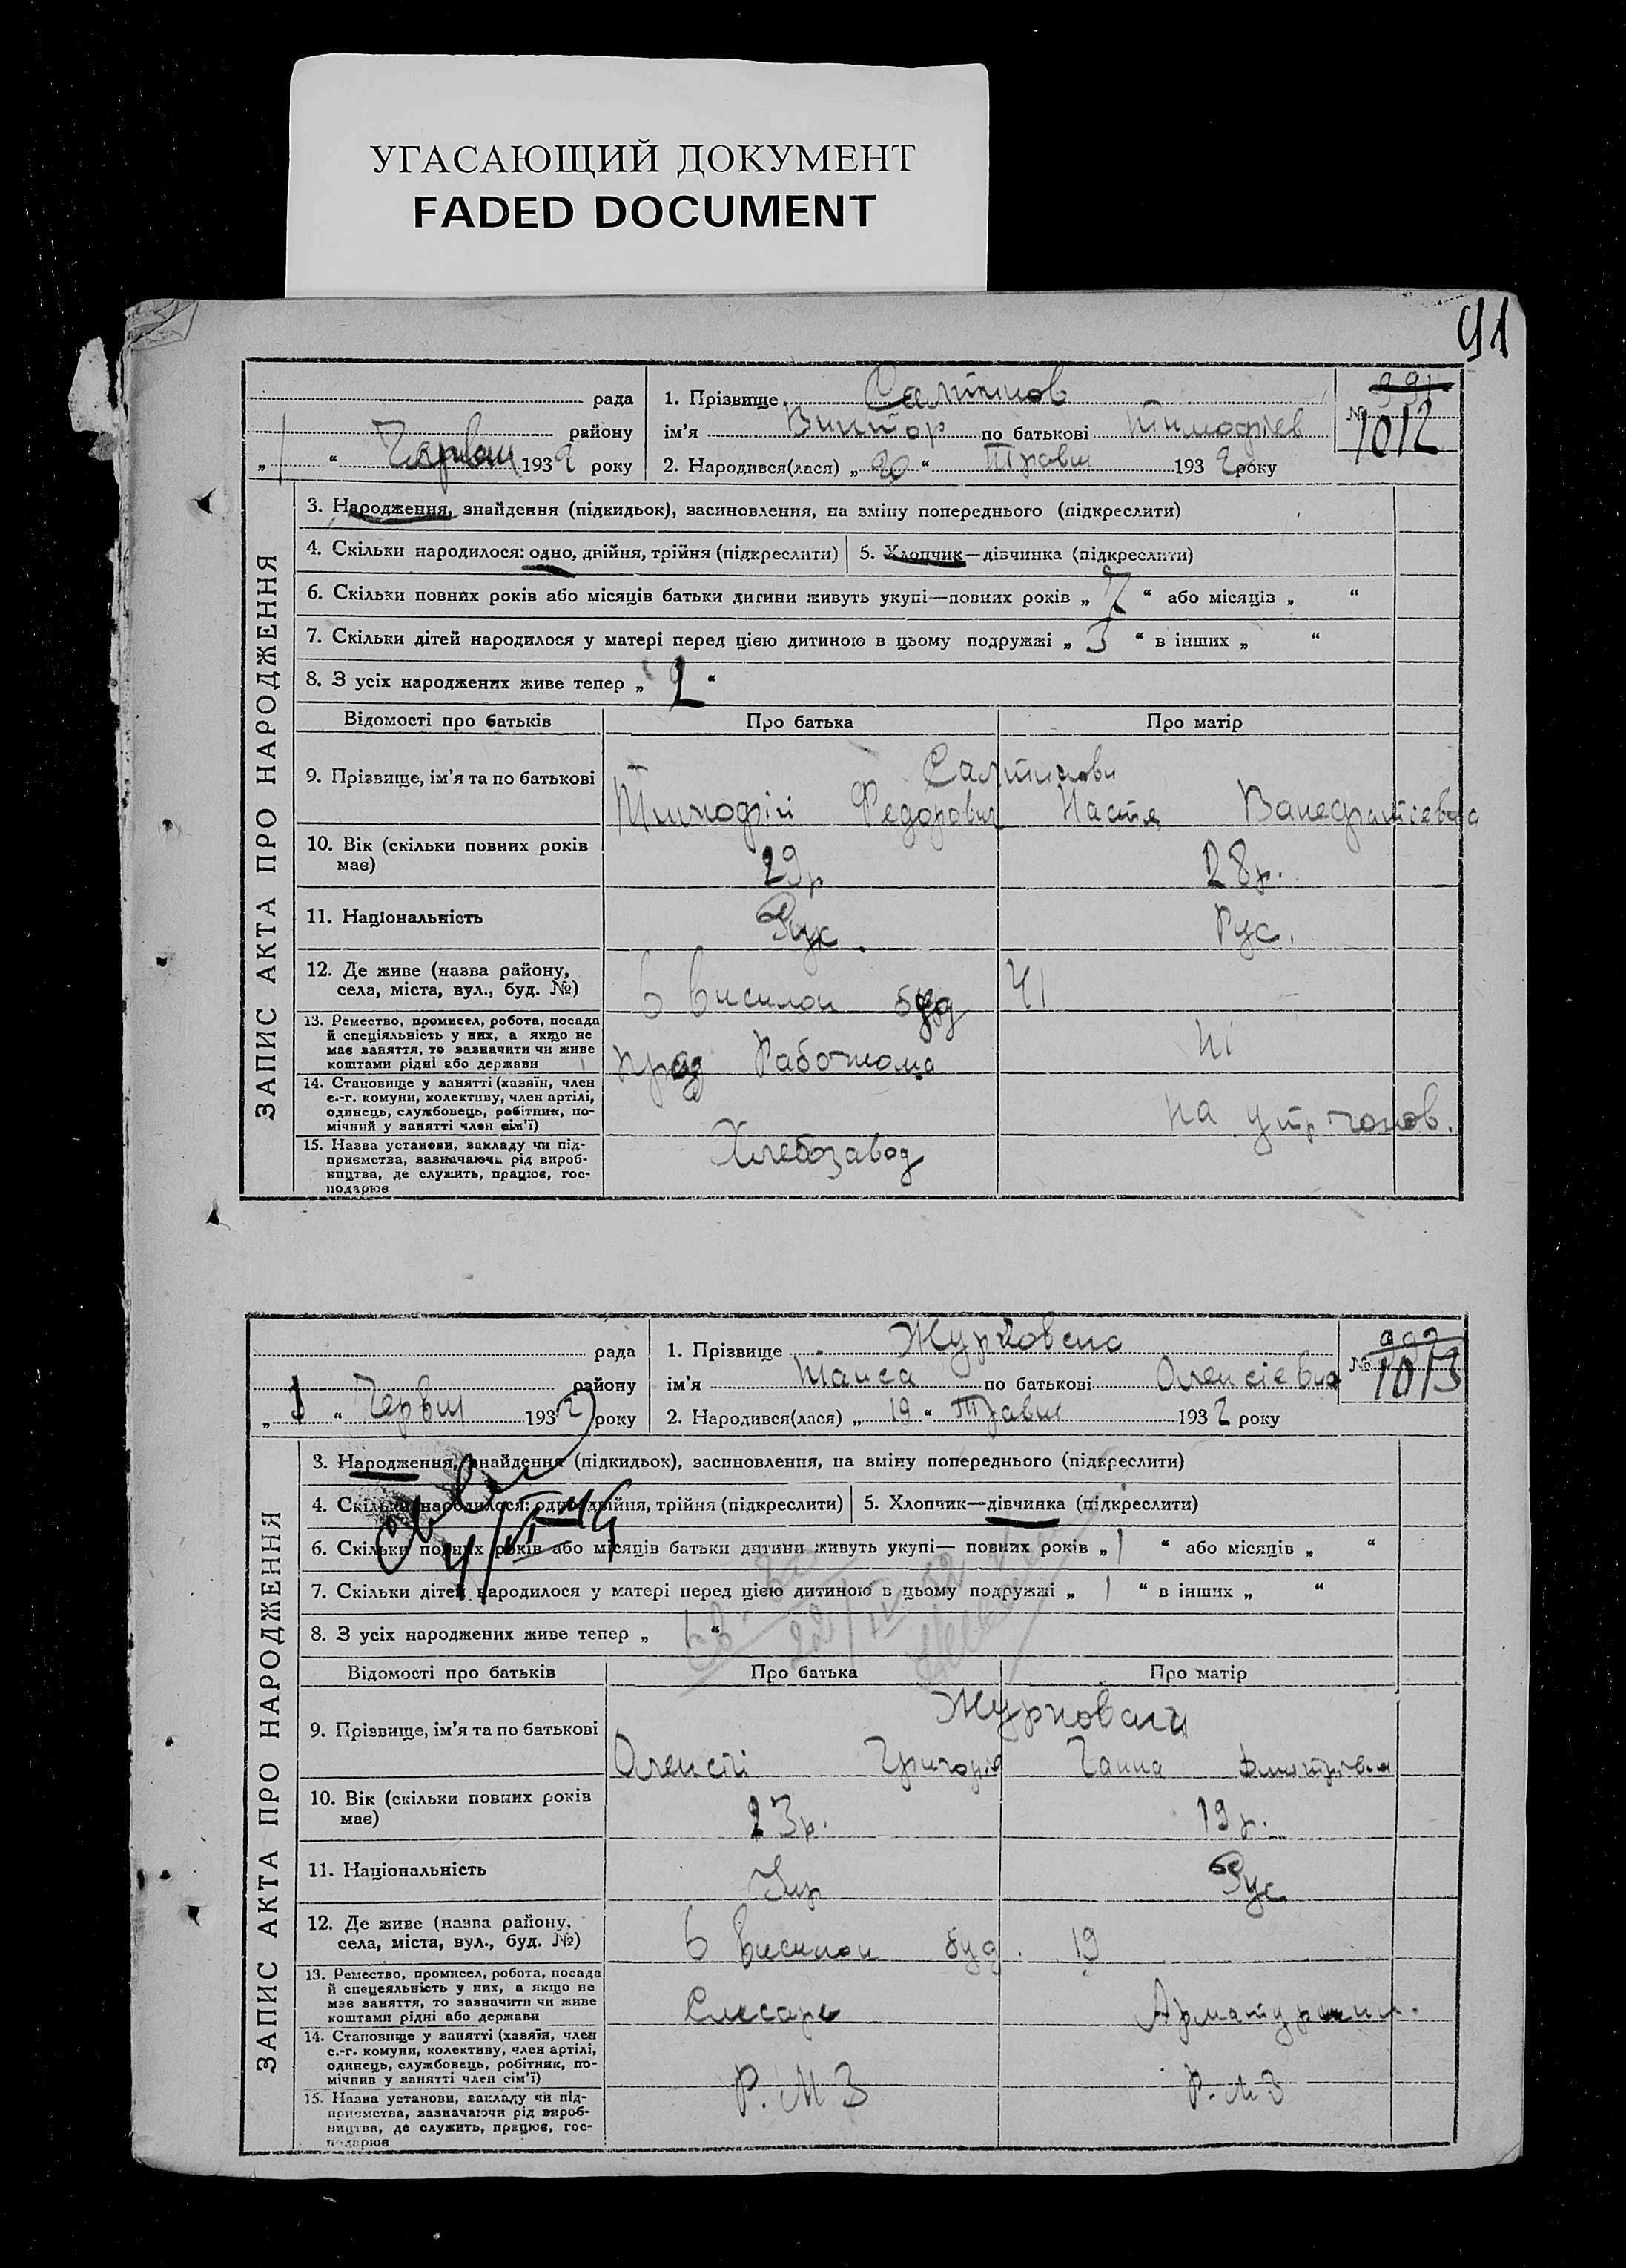 УГАСАЮЩИЙ ДОКУМЕНТ
FADED DOCUMENT
91
рада
району
„ 1 “ Червня 1932 року
1. Прізвище
ім'я Виктор по батькові Тимофіев
2. Народився(лася) „ 20 “ Травня 1932 року
991
№ 1012
ЗАПИС АКТА ПРО НАРОДЖЕННЯ
3. Народження, знайдення (підкидьок), засиновлення, на зміну попереднього (підкреслити)
4. Скільки народилося: одно, двійня, трійня (підкреслити)
5. Хлопчик—дівчинка (підкреслити)
6. Скільки повних років або місяців батьки дитини живуть укупі—повних років „ 7 “ або місяців „ “
7. Скільки дітей народилося у матері перед цією дитиною в цьому подружжі „ 3 “ в інших „ “
8. З усіх народжених живе тепер „ 2 “
Відомості про батьків
Про батька
Про матір
9. Прізвище, ім'я та по батькові
Тимофій Федорович
Настя
10. Вік (скільки повних років
має)
29р
28р.
11. Національність
Рус.
Рус.
12. Де живе (назва району,
села, міста, вул., буд. №)
6 висилок буд 41
13. Ремество, промисел, робота, посада
й спеціяльність у них, а якщо не
має заняття, то зазначити чи живе
коштами рідні або держави
Ні
14. Становище у занятті (хазяїн, член
с.-г. комуни, колективу, член артілі,
одинець, службовець, робітник, по-
мічний у занятті член сім'ї)
На утр чолов.
15. Назва установи, закладу чи під-
приємства, зазначаючи рід вироб-
ництва, де служить, працює, гос-
подарює
Хлебозавод
рада
району
„ 1 “ Червня 1932 року
1. Прізвище
ім'я Таиса по батькові Олексіевна
2. Народився(лася) „ 19 “ Травня 1932 року
992
№ 1013
ЗАПИС АКТА ПРО НАРОДЖЕННЯ
3. Народження, знайдення (підкидьок), засиновлення, на зміну попереднього (підкреслити)
4. Скільки народилося: одно, двійня, трійня (підкреслити)
5. Хлопчик—дівчинка (підкреслити)
6. Скільки повних років або місяців батьки дитини живуть укупі— повних років „ 1 “ або місяців „ “
7. Скільки дітей народилося у матері перед цією дитиною в цьому подружжі „ 1 “ в інших „ “
8. З усіх народжених живе тепер „ “
Відомості про батьків
Про батька
Про матір
9. Прізвище, ім'я та по батькові
Олексій
Ганна Дмитрівна
10. Вік (скільки повних років
має)
23р.
19р.
11. Національність
Укр
Рус
12. Де живе (назва району,
села, міста, вул., буд. №)
6 висилок буд. 19
13. Ремество, промисел, робота, посада
й спецеяльність у них, а якщо не
має заняття, то зазначити чи живе
коштами рідні або держави
Слесарь
14. Становище у занятті (хазяїн, член
с.-г. комуни, колективу, член артілі,
одинець, службовець, робітник, по-
мічния у занятті член сім'ї)
Р.М.З
Р.М.З
15. Назва установи, закладу чи під-
приємства, зазначаючи рід вироб-
ництва, де служить, працює, гос-
подарює